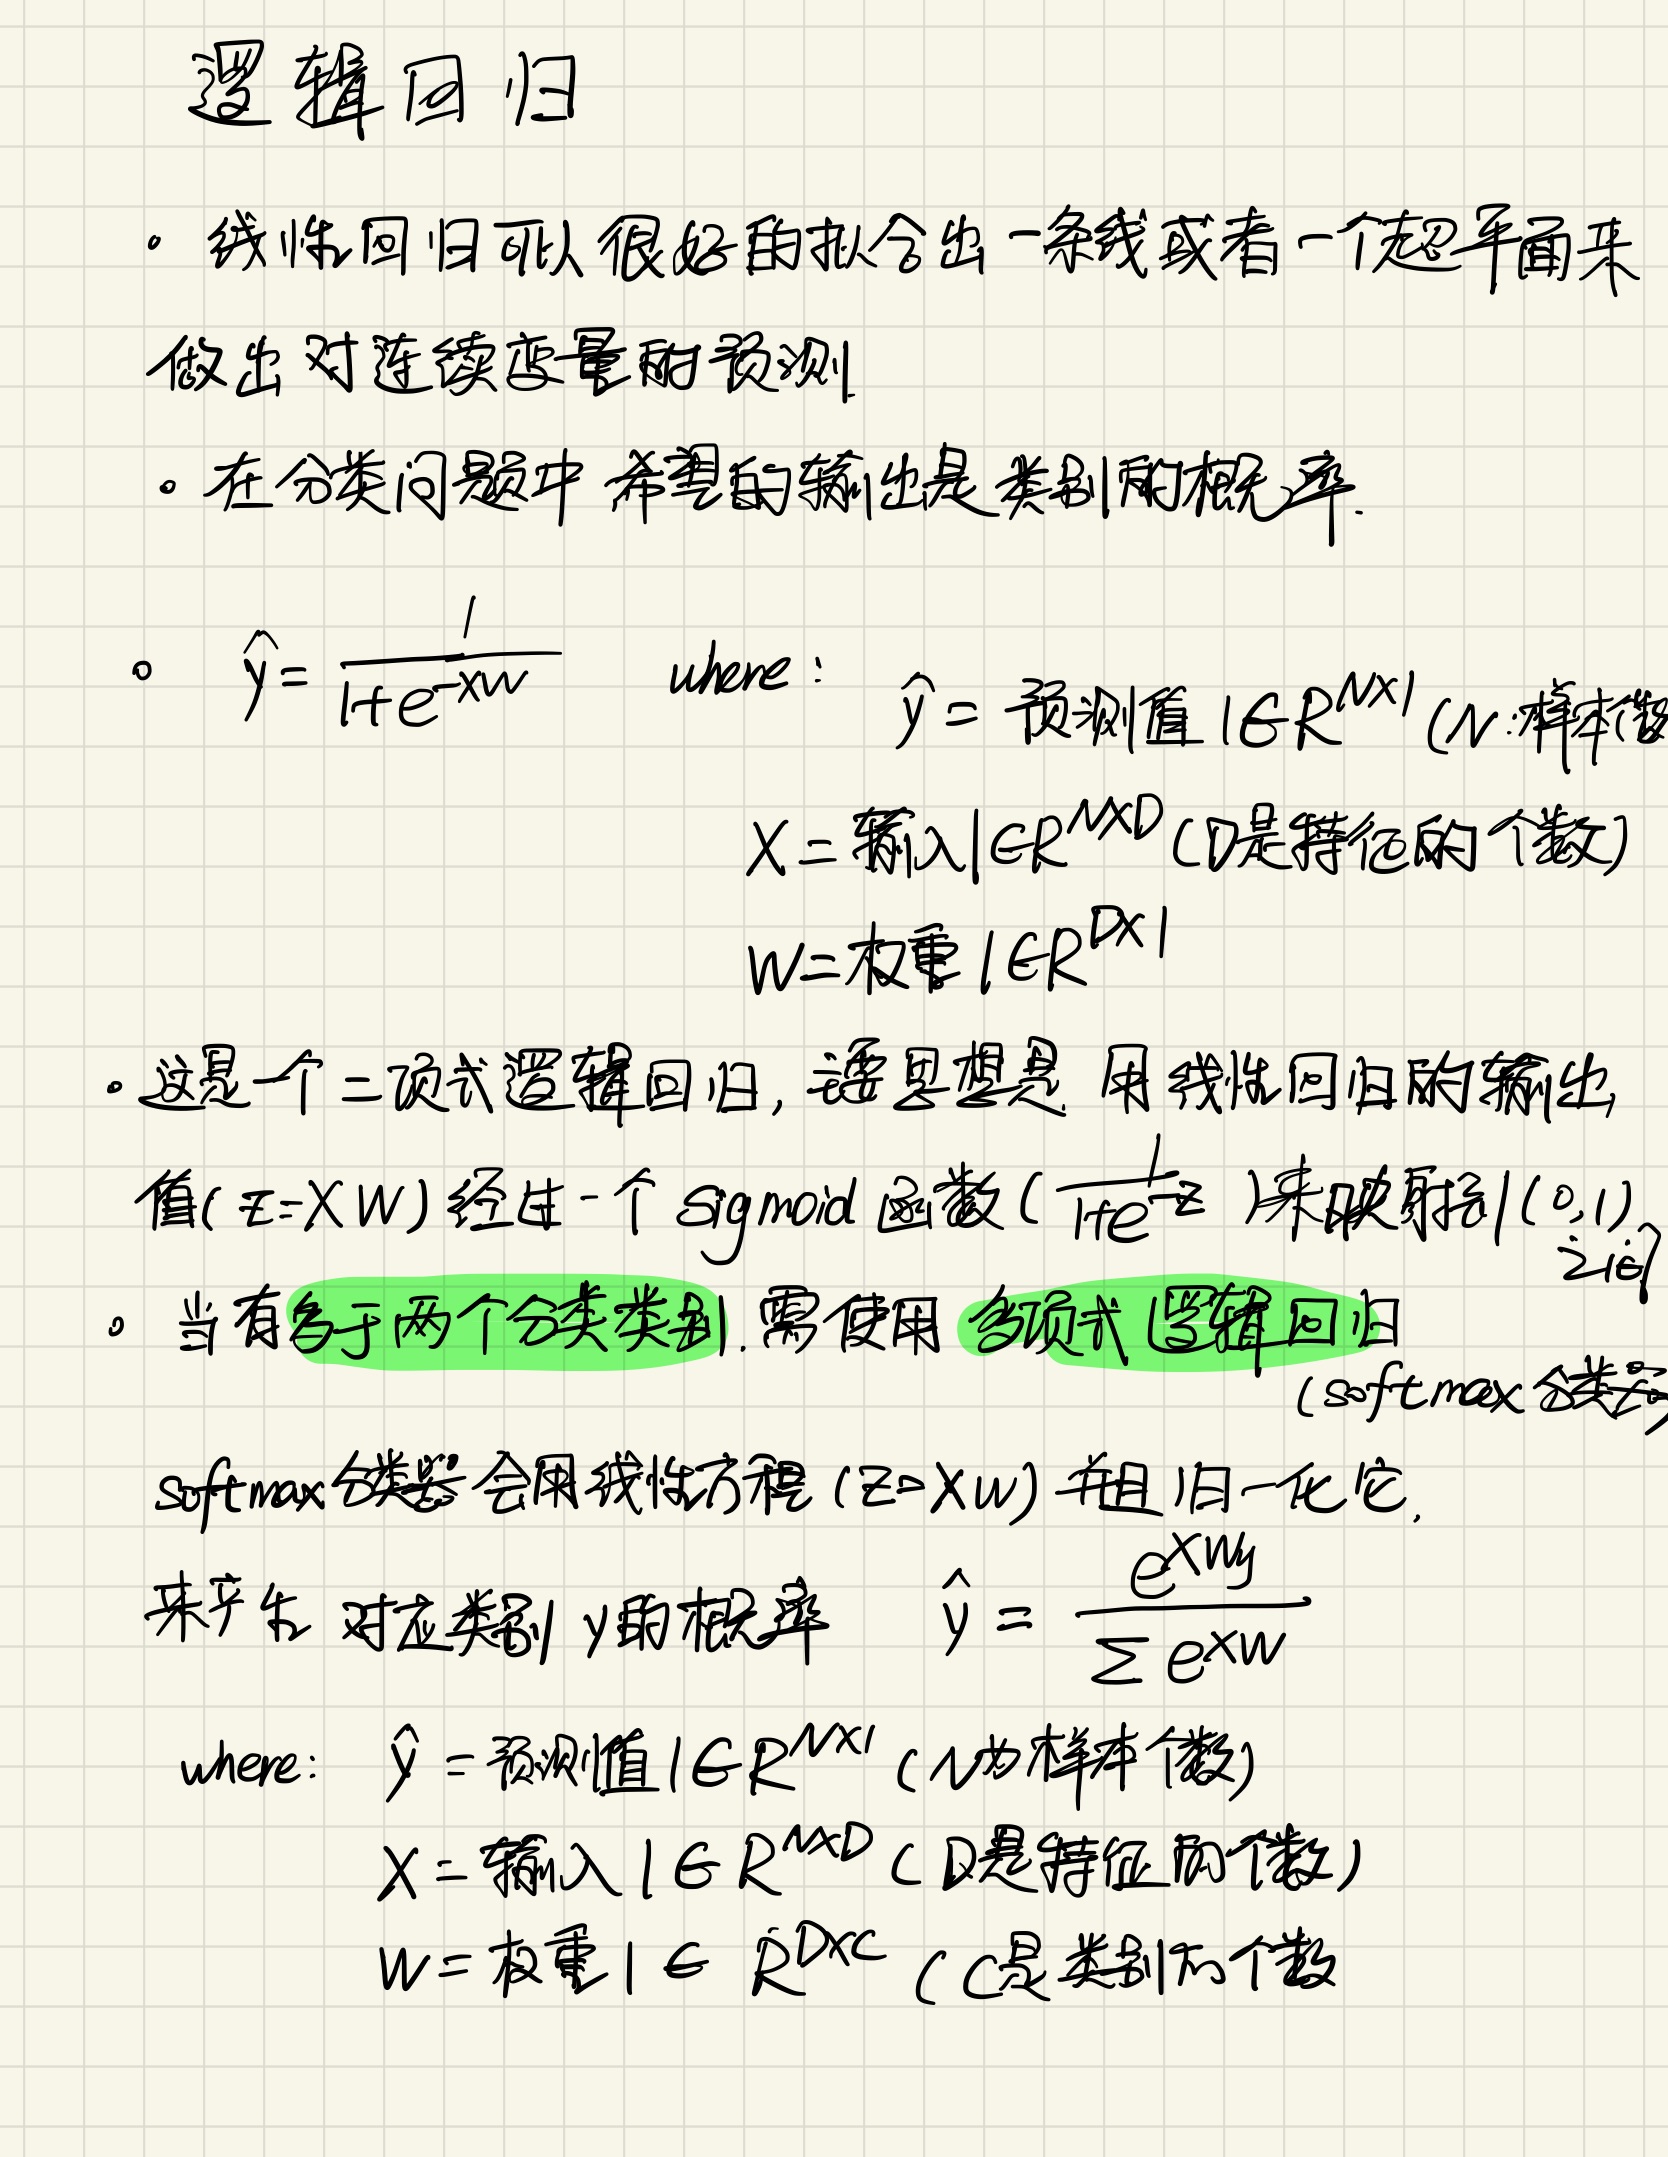 逻辑回归
• 线性回归可以很好的拟合出一条线或者一个超平面来
做出对连续变量的预测.
• 在分类问题中 希望的输出是类别的概率.
• ŷ = 1/(1+e^(-XW)) where:
ŷ = 预测值 | ∈ R^(N×1) (N:样本个数
X = 输入 | ∈ R^(N×D) (D是特征的个数)
W = 权重 | ∈ R^(D×1)
• 这是一个二项式逻辑回归, 主要思想是 用线性回归的输出
值(z=XW) 经过一个 sigmoid 函数 (1/(1+e^(-z))) 来映射到(0,1)
之间
• 当有多于两个分类类别.需使用 多项式逻辑回归
(softmax 分类器)
softmax 分类器 会用线性方程 (z=XW) 并且归一化它.
来产生 对应类别 y的概率 ŷ = e^(XWy) / Σ e^(XW)
where: ŷ = 预测值 | ∈ R^(N×1) (N为样本个数)
X = 输入 | ∈ R^(N×D) (D是特征的个数)
W = 权重 | ∈ R^(D×C) (C是类别的个数